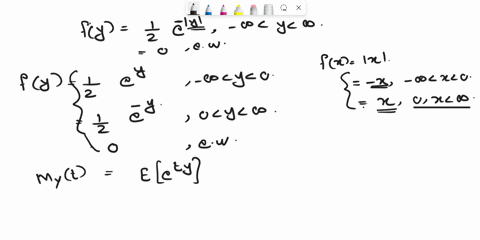 f(y) = 1/2 e^{-|y|}, -∞ < y < ∞.
= 0, e.w
f(x) = |x|
= -x, -∞ < x < 0
= x, 0, x < ∞
f(y) = 1/2 e^y, -∞ < y < 0
= 1/2 e^{-y}, 0 < y < ∞
0, e.w.
M_Y(t) = E[e^{ty}]